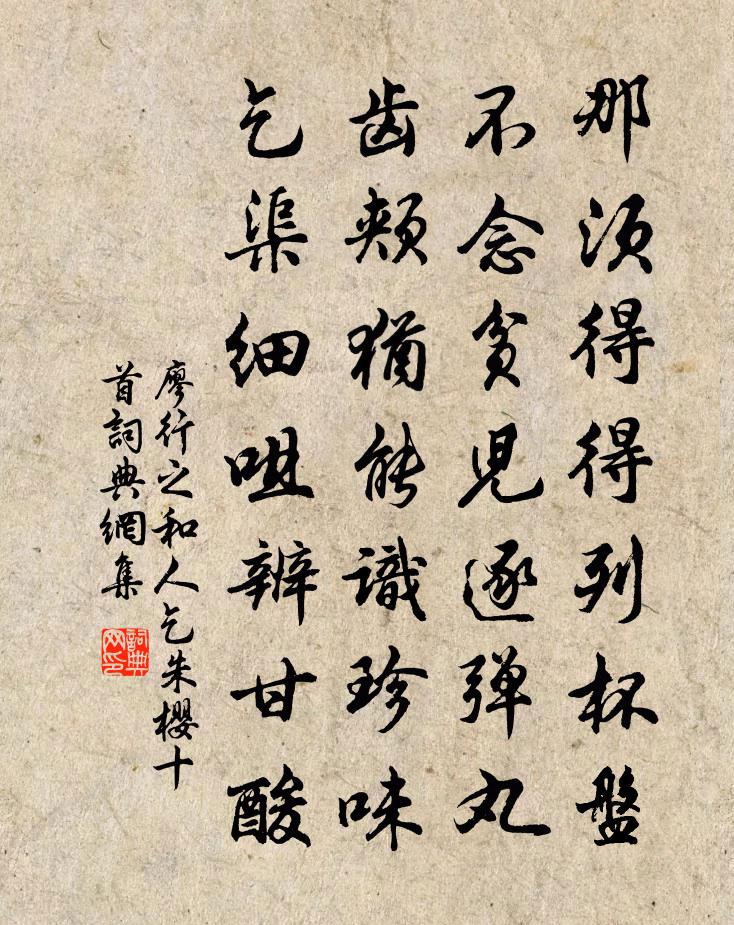 那須得得列杯盤
不念貧兒逐弹丸
齿頰猶能識珍味
乞渠细咀辨甘酸
廖行之和人乞朱櫻十
首詞典網集
詞典
网印